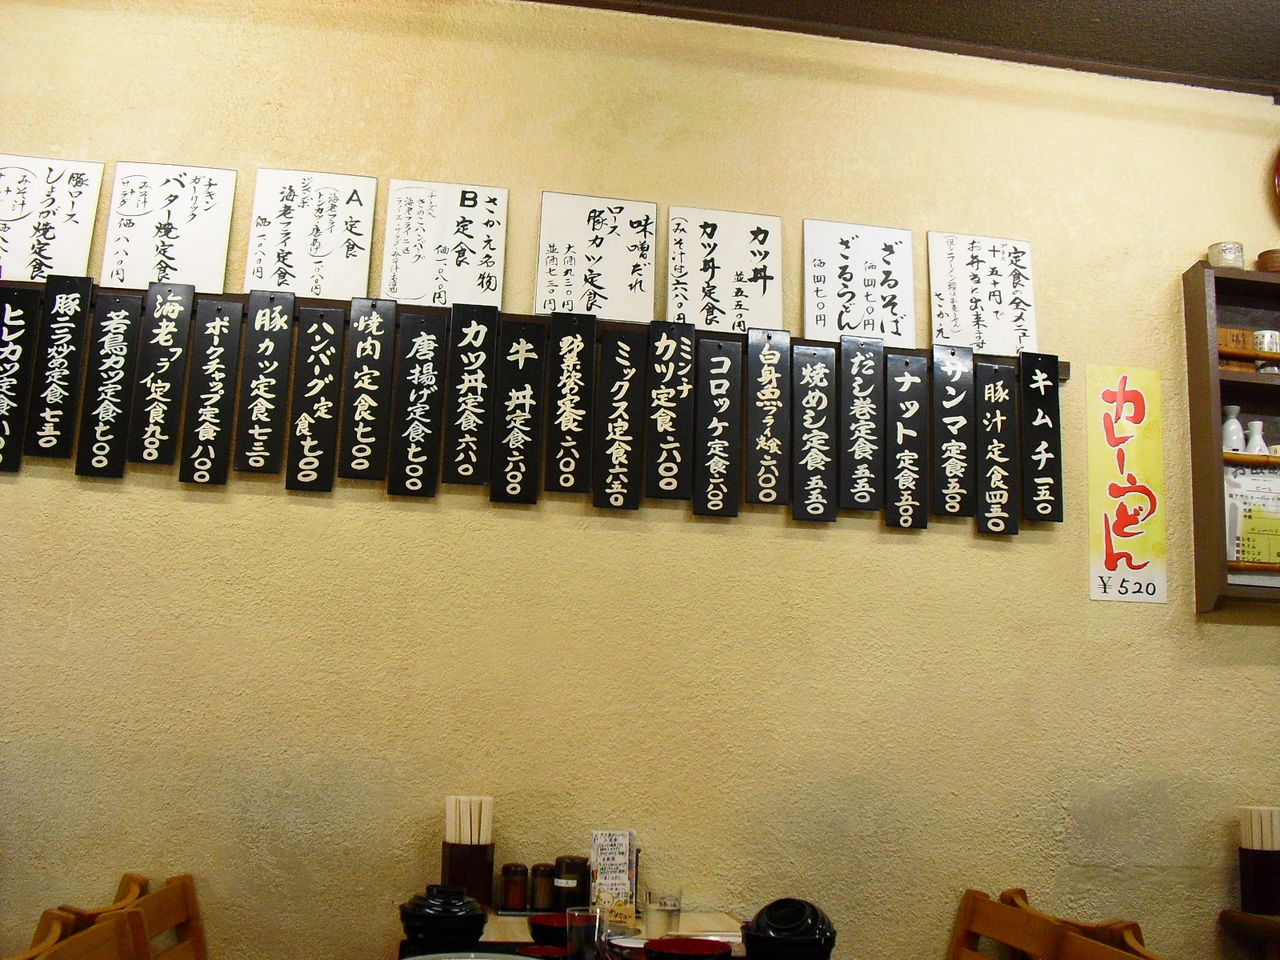 定食の全メニュー
プラス
十五十円で
お弁当と出来ます
さかえ
ざるそば
価四七〇円
ざるうどん
価四七〇円
カツ丼
並五五〇円
カツ丼定食
(みそ汁付)六八〇円
味噌だれ
ロース
豚カツ定食
大価九二〇円
並価七三〇円
さかえ名物
B定食
価一、〇八〇円
A定食
海老フライ
トンカツ・唐あげ
一、〇八〇円
ジャンボ
海老フライ定食
価一、〇八〇円
チキン
ガーリック
バター焼定食
みそ汁
サラダ
価八八〇円
豚ロース
しょうが焼定食
みそ汁
キムチ一五〇
豚汁定食四三〇
サンマ定食五五〇
ナット定食五五〇
だシ巻定食五五〇
焼めシ定食五五〇
白身魚フライ定食六〇〇
コロッケ定食六〇〇
ミンチカツ定食六〇〇
ミックス定食六八〇
野菜炒定食六〇〇
牛丼定食六八〇
カツ丼定食六八〇
唐揚げ定食七〇〇
焼肉定食七〇〇
ハンバーグ定食七〇〇
豚カツ定食七三〇
ポークチャップ定食八〇〇
海老フライ定食九〇〇
若鳥カツ定食七〇〇
豚ニラ炒め定食七五〇
ヒレカツ定食
カレーうどん
¥520